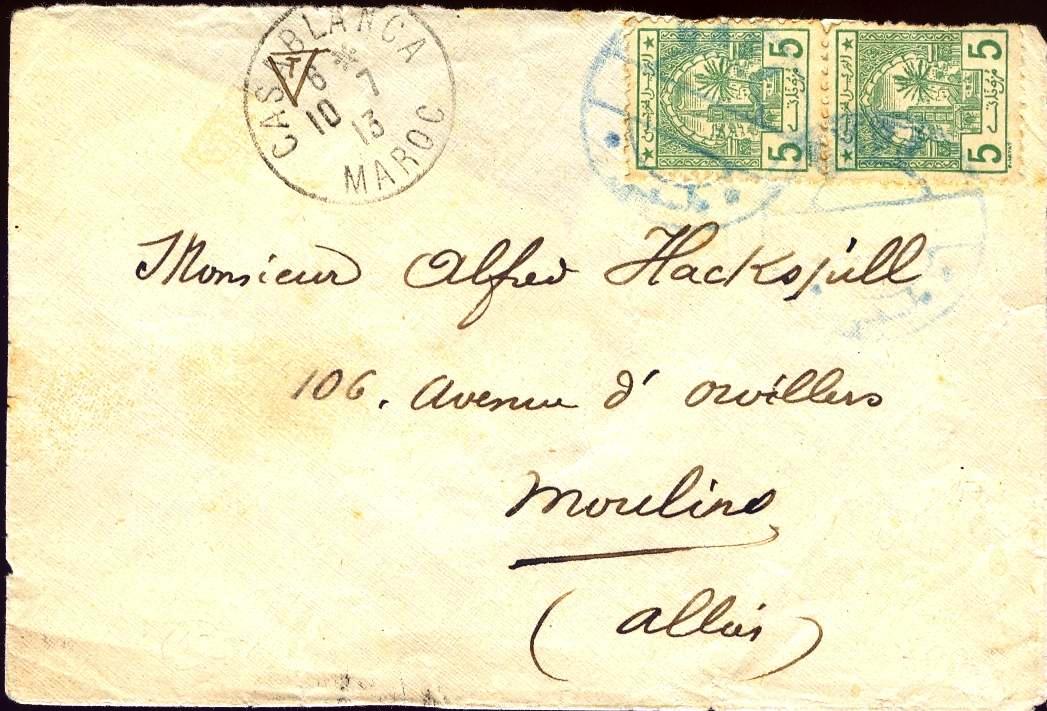 CASABLANCA
8 7
10 13
MAROC
T
5 5
5 5
Monsieur Alfred Hackspill
106. Avenue d' Orvillers
Moulins
(Allier)